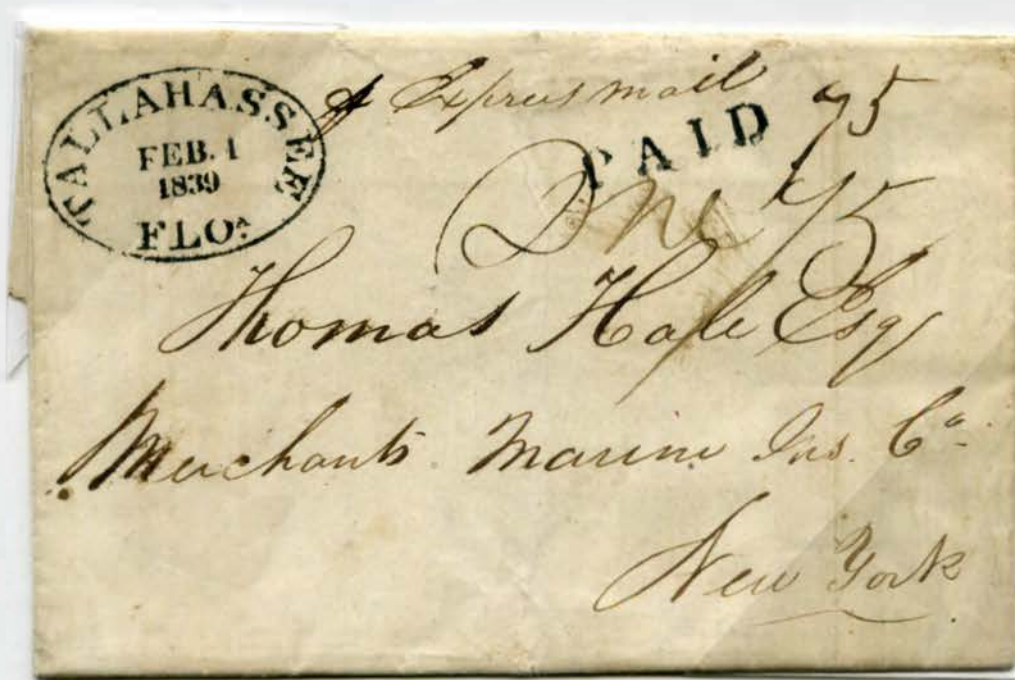 TALLAHASSEE
FEB. 1
1839
FLOA
Express mail 75
PAID
One 75
Thomas Hale Esq
Merchants Marine Ins. Co
New York